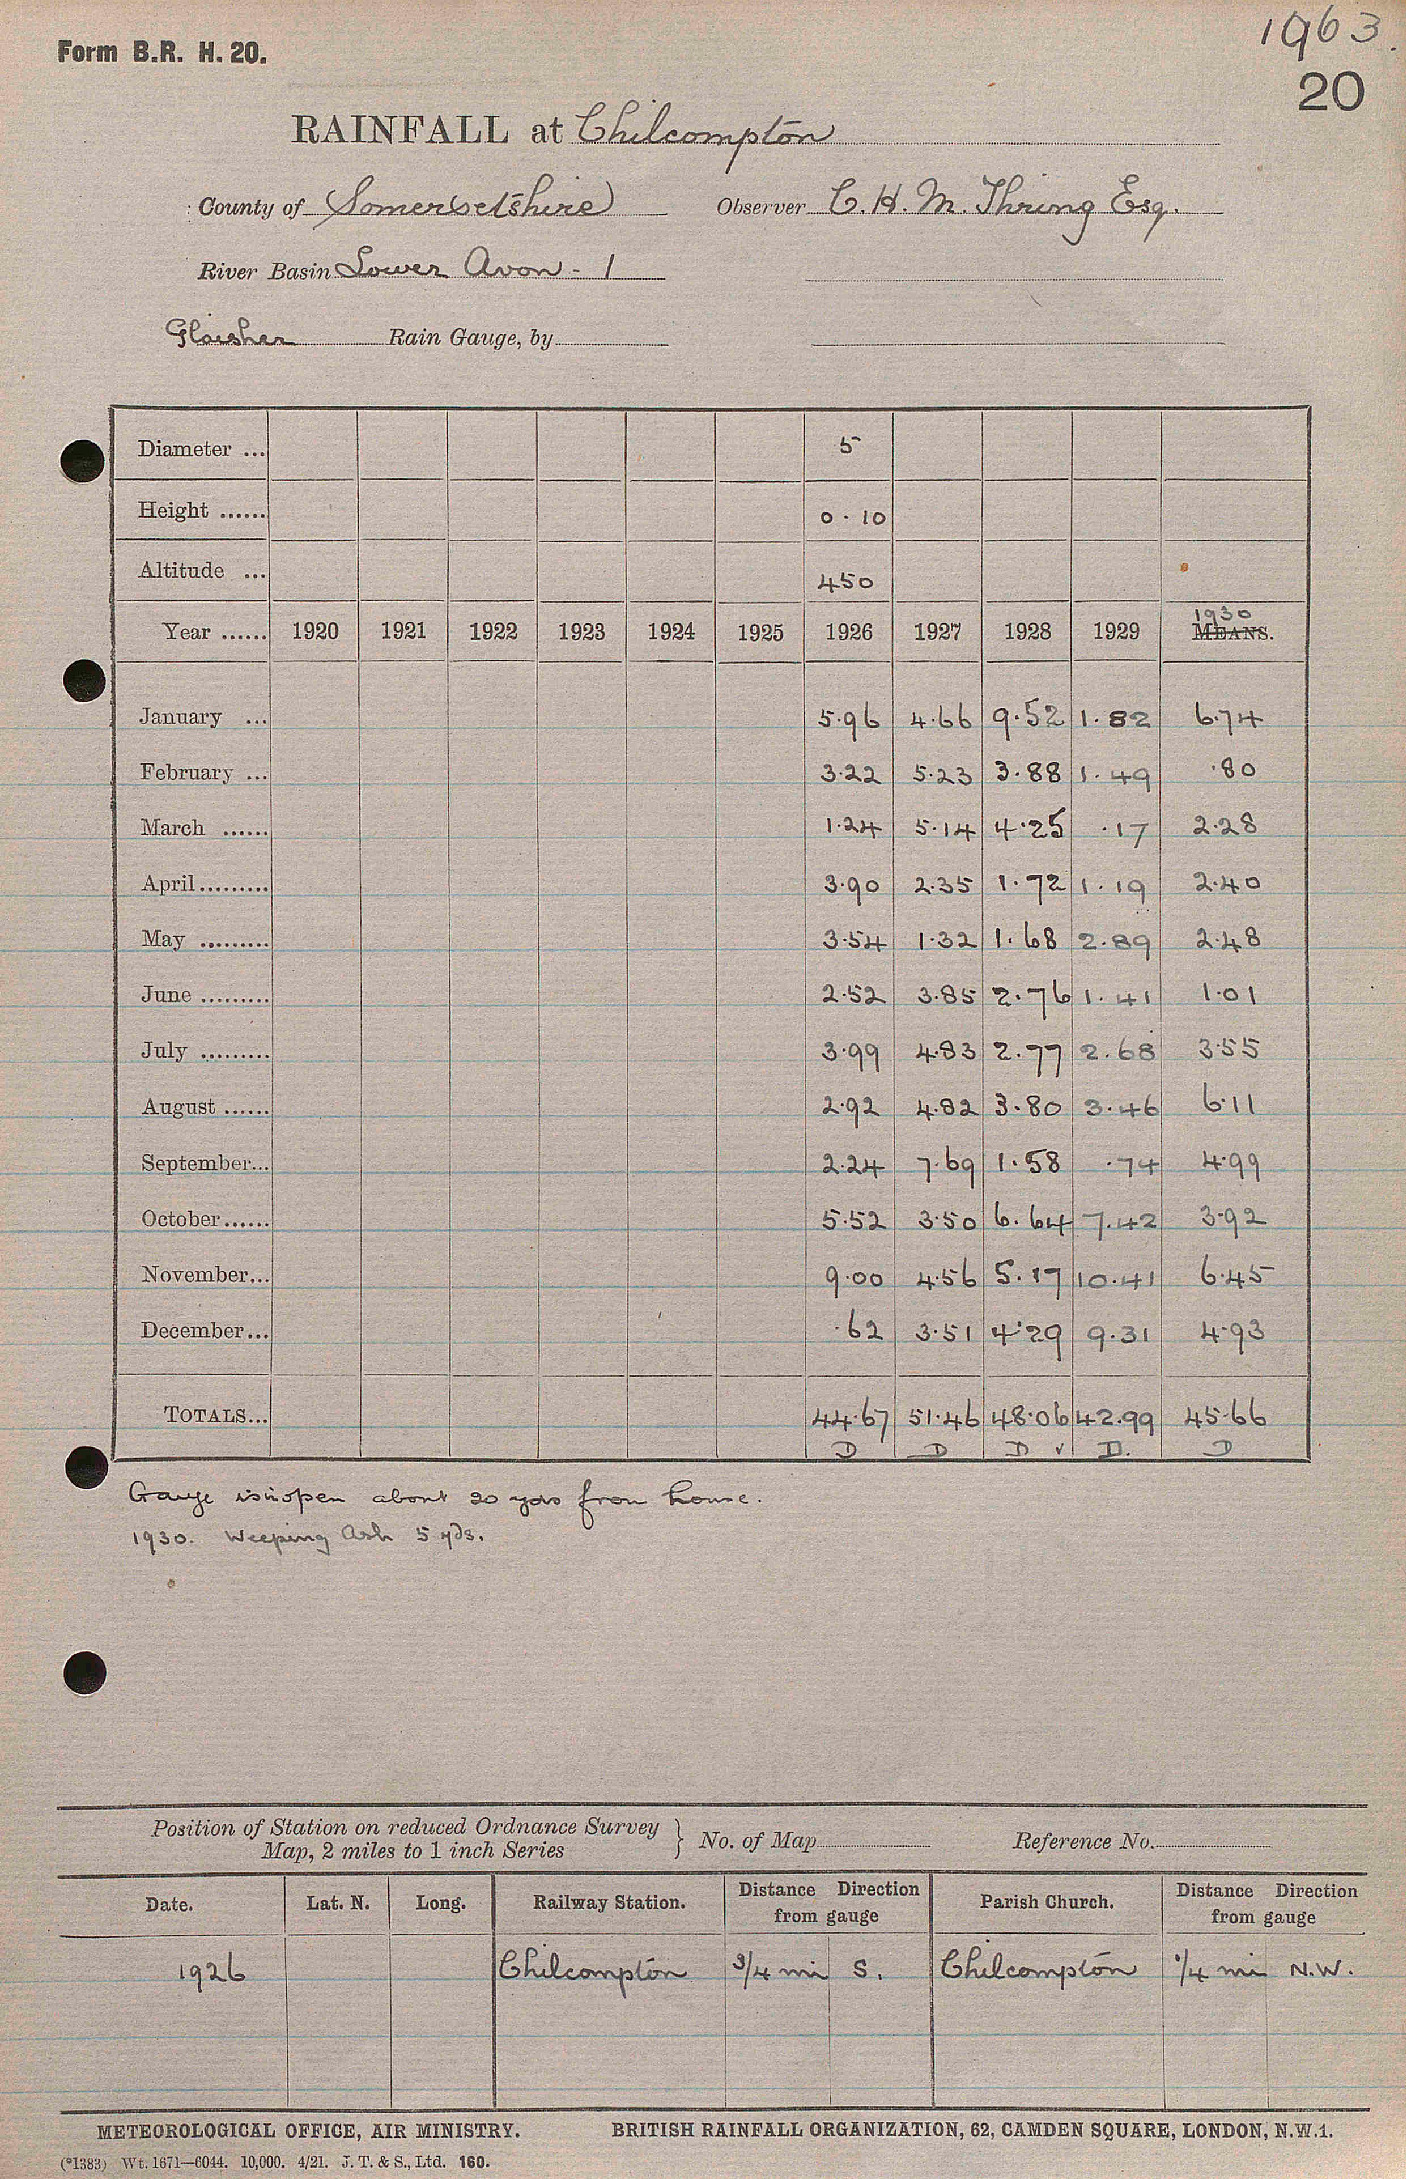 1963.
Form B.R. H. 20.
20
RAINFALL at Chilcompton
County of Somersetshire Observer C. H. M. Thring Esq.
River Basin Lower Avon - 1
Glaisher Rain Gauge, by
Diameter ... 5
Height ...... 0 - 10
Altitude ... 450
Year ...... 1920 1921 1922 1923 1924 1925 1926 1927 1928 1929 1930 MEANS.
January ... 5.96 4.66 9.52 1.82 6.74
February ... 3.22 5.23 3.88 1.49 .80
March ...... 1.24 5.14 4.25 .17 2.28
April ......... 3.90 2.35 1.72 1.19 2.40
May ......... 3.54 1.32 1.68 2.89 2.48
June ......... 2.52 3.85 2.76 1.41 1.01
July ......... 3.99 4.83 2.77 2.68 3.55
August ...... 2.92 4.82 3.80 3.46 6.11
September... 2.24 7.69 1.58 .74 4.99
October...... 5.52 3.50 6.64 7.42 3.92
November... 9.00 4.56 5.17 10.41 6.45
December... .62 3.51 4.29 9.31 4.93
TOTALS... 44.67 51.46 48.06 42.99 45.66
D D D v D. D
Gauge is in open about 20 yds from house.
1930. Weeping Ash 5 yds.
Position of Station on reduced Ordnance Survey
Map, 2 miles to 1 inch Series } No. of Map Reference No.
Date. Lat. N. Long. Railway Station. Distance Direction from gauge Parish Church. Distance Direction from gauge
1926 Chilcompton 3/4 mi S. Chilcompton 1/4 mi N.W.
METEOROLOGICAL OFFICE, AIR MINISTRY. BRITISH RAINFALL ORGANIZATION, 62, CAMDEN SQUARE, LONDON, N.W.1.
(*1383) Wt. 1671—6044. 10,000. 4/21. J. T. & S., Ltd. 160.